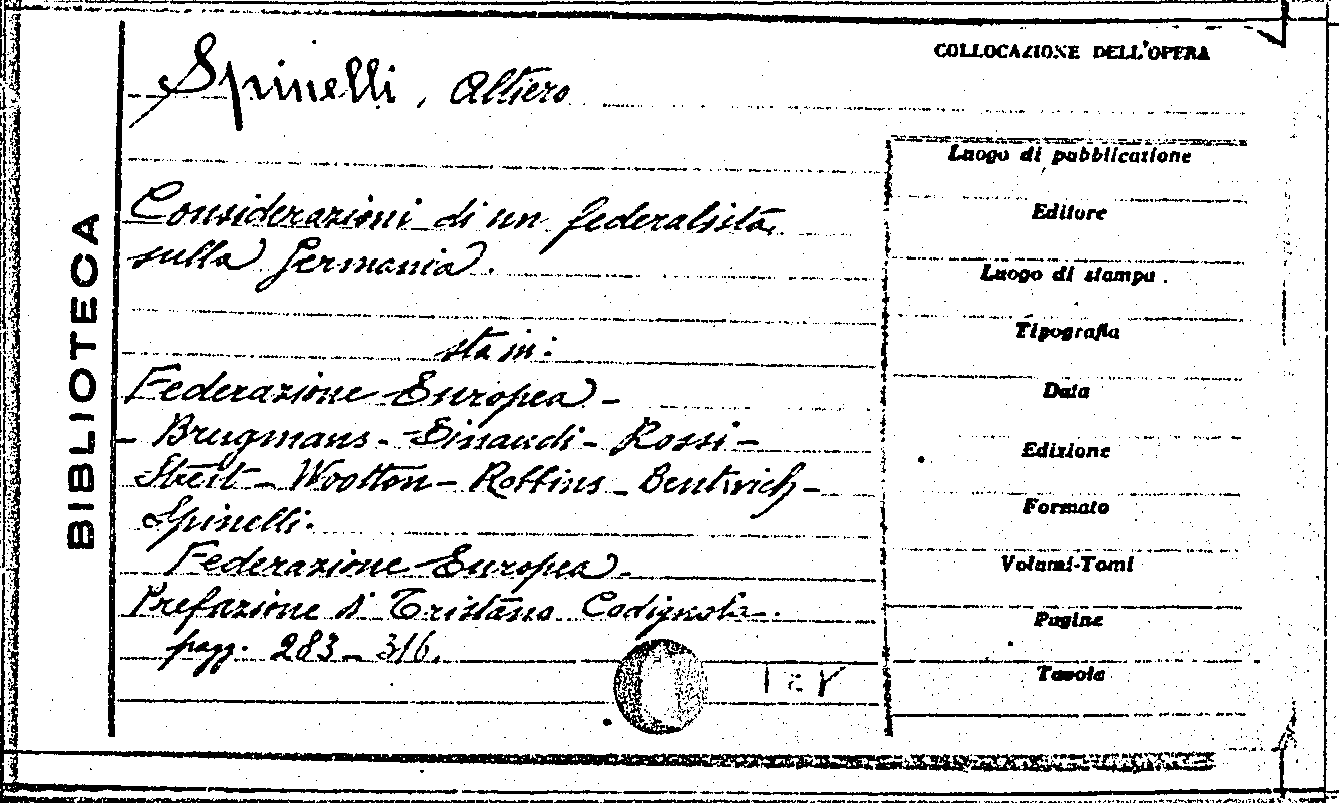 COLLOCAZIONE DELL'OPERA
Spinelli, Altiero
BIBLIOTECA
Considerazioni di un federalista
sulla Germania.
sta in:
Federazione Europea -
- Brugmans - Einaudi - Rossi -
Streit - Wootton - Robbins - Bentwich -
Spinelli.
Federazione Europea -
Prefazione di Tristano Codignola.
pagg. 283 - 316.
Luogo di pubblicazione
Editore
Luogo di stampa
Tipografia
Data
Edizione
Formato
Volumi-Tomi
Pagine
Tavole